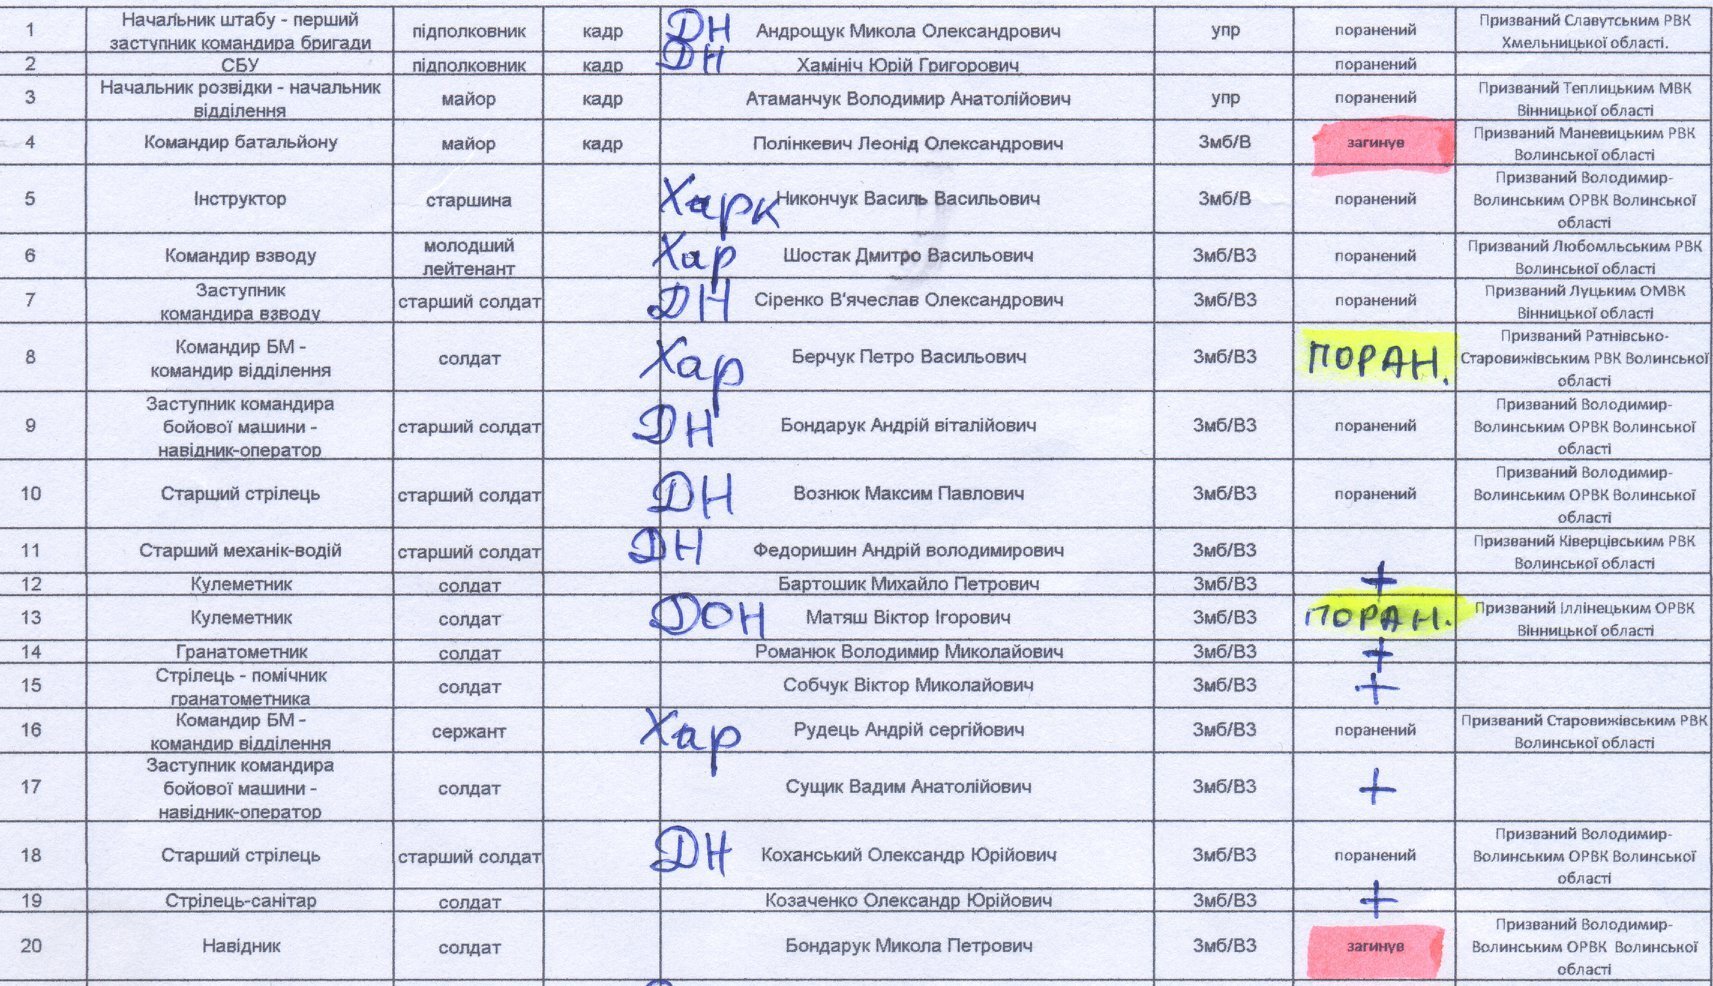 1 Начальник штабу - перший підполковник кадр ДН Андрощук Микола Олександрович упр поранений Призваний Славутським РВК
заступник командира бригади Хмельницької області.
2 СБУ підполковник кадр ДН Хамініч Юрій Григорович поранений
3 Начальник розвідки - начальник майор кадр Атаманчук Володимир Анатолійович упр поранений Призваний Теплицьким МВК
відділення Вінницької області
4 Командир батальйону майор кадр Полінкевич Леонід Олександрович 3мб/В загинув Призваний Маневицьким РВК
Волинської області
Призваний Володимир-
5 Інструктор старшина Харк Никончук Василь Васильович 3мб/В поранений Волинським ОРВК Волинської
області
6 Командир взводу молодший Хар Шостак Дмитро Васильович 3мб/В3 поранений Призваний Любомльським РВК
лейтенант Волинської області
7 Заступник старший солдат ДН Сіренко В'ячеслав Олександрович 3мб/В3 поранений Призваний Луцьким ОМВК
командира взводу Вінницької області
Призваний Ратнівсько-
8 Командир БМ - солдат Хар Берчук Петро Васильович 3мб/В3 ПОРАН. Старовижівським РВК Волинської
командир відділення області
Заступник командира Призваний Володимир-
9 бойової машини - старший солдат ДН Бондарук Андрій віталійович 3мб/В3 поранений Волинським ОРВК Волинської
навідник-оператор області
Призваний Володимир-
10 Старший стрілець старший солдат ДН Вознюк Максим Павлович 3мб/В3 поранений Волинським ОРВК Волинської
області
11 Старший механік-водій старший солдат ДН Федоришин Андрій володимирович 3мб/В3 Призваний Ківерцівським РВК
Волинської області
12 Кулеметник солдат Бартошик Михайло Петрович 3мб/В3 +
13 Кулеметник солдат ДОН Матяш Віктор Ігорович 3мб/В3 ПОРАН. Призваний Іллінецьким ОРВК
Вінницької області
14 Гранатометник солдат Романюк Володимир Миколайович 3мб/В3 +
15 Стрілець - помічник солдат Собчук Віктор Миколайович 3мб/В3 +
гранатометника
16 Командир БМ - сержант Хар Рудець Андрій сергійович 3мб/В3 поранений Призваний Старовижівським РВК
командир відділення Волинської області
Заступник командира
17 бойової машини - солдат Сущик Вадим Анатолійович 3мб/В3 +
навідник-оператор
Призваний Володимир-
18 Старший стрілець старший солдат ДН Коханський Олександр Юрійович 3мб/В3 поранений Волинським ОРВК Волинської
області
19 Стрілець-санітар солдат Козаченко Олександр Юрійович 3мб/В3 +
Призваний Володимир-
20 Навідник солдат Бондарук Микола Петрович 3мб/В3 загинув Волинським ОРВК Волинської
області